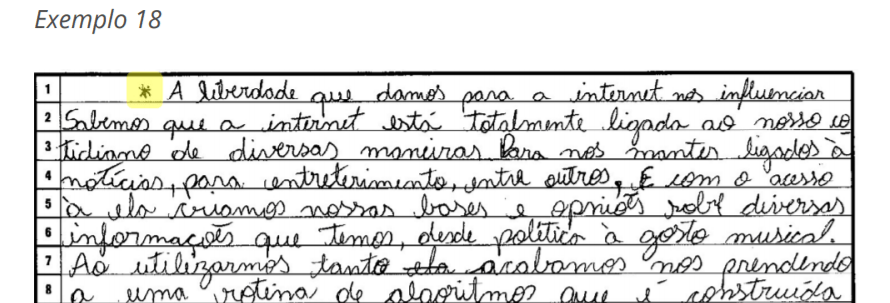 Exemplo 18
1 * A liberdade que damos para a internet nos influenciar
2 Sabemos que a internet está totalmente ligada ao nosso co
3 tidiano de diversas maneiras Para nos manter ligados à
4 notícias, para entreterimento, entre outros, E com o acesso
5 à ela criamos nossas bases e opniões sobre diversas
6 informações que temos, desde política à gosto musical.
7 Ao utilizarmos tanto ela acabamos nos prendendo
8 a uma rotina de algoritmos que é construída